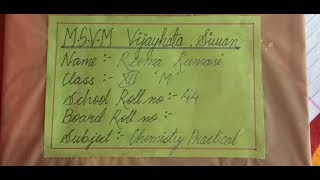 M.S.V.M Vijayhata, Siwan
Name :- Reema Kumari
Class :- XII 'M'
School Roll.no :- 44
Board Roll no :-
Subject :- Chemistry Practical